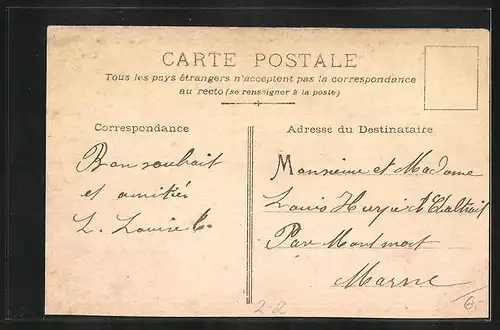 CARTE POSTALE
Tous les pays étrangers n'acceptent pas la correspondance
au recto (se renseigner à la poste)
Correspondance
Bon souhait
et amitiés
L. Louise
Adresse du Destinataire
Monsieur et Madame
Louis
Par Montmort
Marne
2-2
6.-